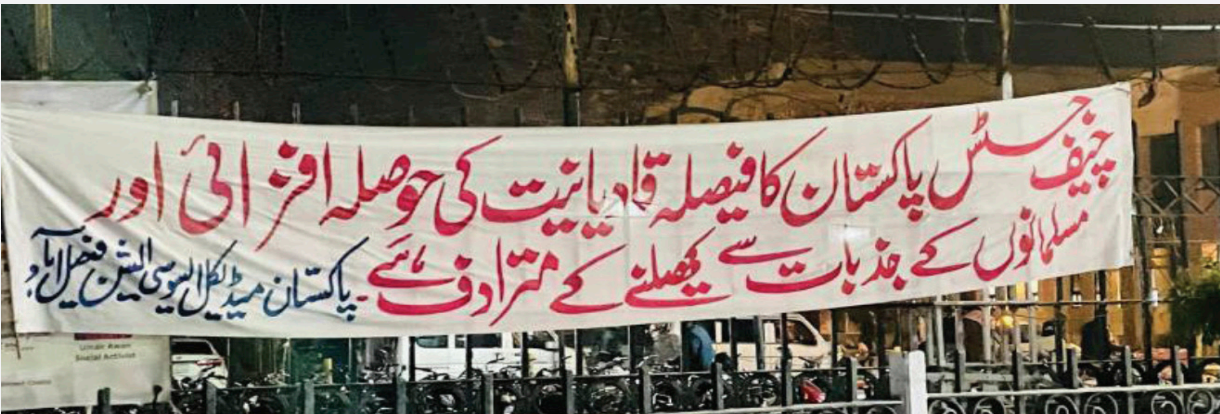 چیف جسٹس پاکستان کا فیصلہ قادیانیت کی حوصلہ افزائی اور
مسلمانوں کے جذبات سے کھیلنے کے مترادف ہے۔ پاکستان میڈیکل ایسوسی ایشن فیصل آباد
Umair Awan
Social Activist